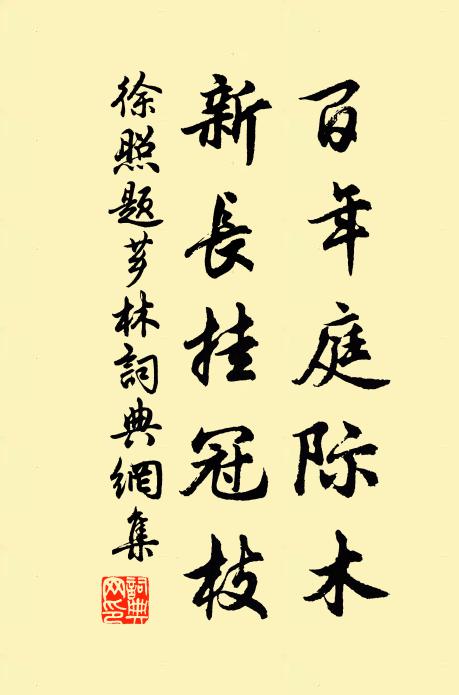 百年庭际木
新長挂冠枝
徐照題芗林詞典網集
詞典网印